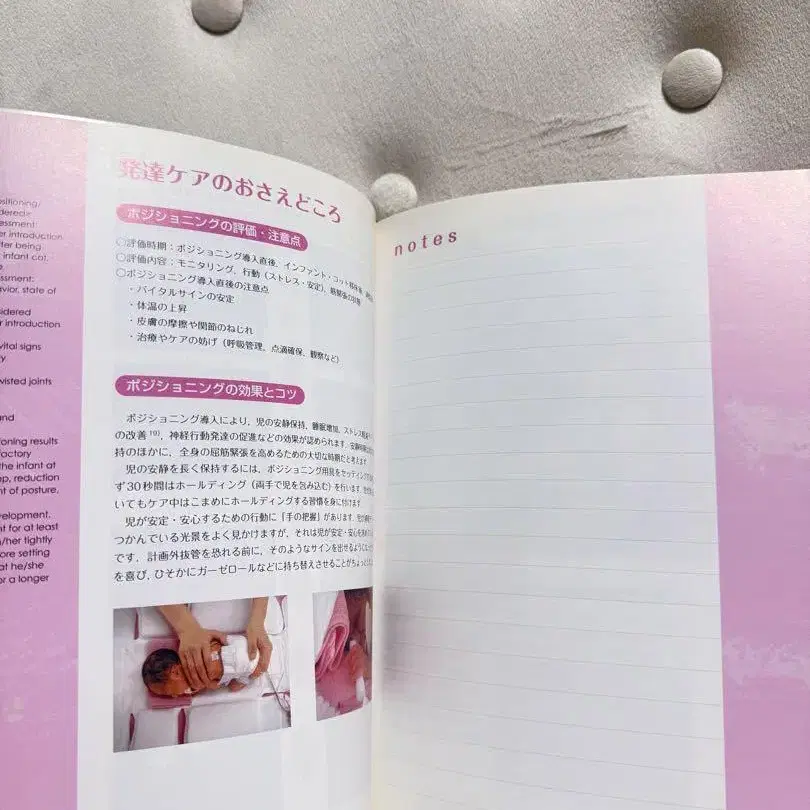 sitioning/
dered»
essment:
er introduction
fter being
infant cot,
e
ssment:
avior, state of
sidered
r introduction
vital signs
y
wisted joints
and
oning results
factory
the infant at
ep, reduction
nt of posture,
evelopment,
nt for at least
/her tightly
ore setting
at he/she
or a longer
発達ケアのおさえどころ
ポジショニングの評価・注意点
○評価時期:ポジショニング導入直後、インファント・コット
○評価内容:モニタリング、行動(ストレス・安定)、筋緊張の
○ポジショニング導入直後の注意点
・バイタルサインの安定
・体温の上昇
・皮膚の摩擦や関節のねじれ
・治療やケアの妨げ(呼吸管理、点滴確保、観察など)
ポジショニングの効果とコツ
ポジショニング導入により、児の安静保持、睡眠増加、ストレス
の改善¹⁰⁾、神経行動発達の促進などの効果が認められます。
持のほかに、全身の屈筋緊張を高めるための大切な時期だと考えます。
児の安静を長く保持するには、ポジショニング用具をセッティング
ず30秒間はホールディング(両手で児を包み込む)を行います。
いてもケア中はこまめにホールディングする習慣を身に付けます。
児が安定・安心するための行動に「手の把握」があります。児が
つかんでいる光景をよく見かけますが、それは児が安定・安心を
です。計画外抜管を恐れる前に、そのようなサインを出せるように
を喜び、ひそかにガーゼロールなどに持ち替えさせることが
notes